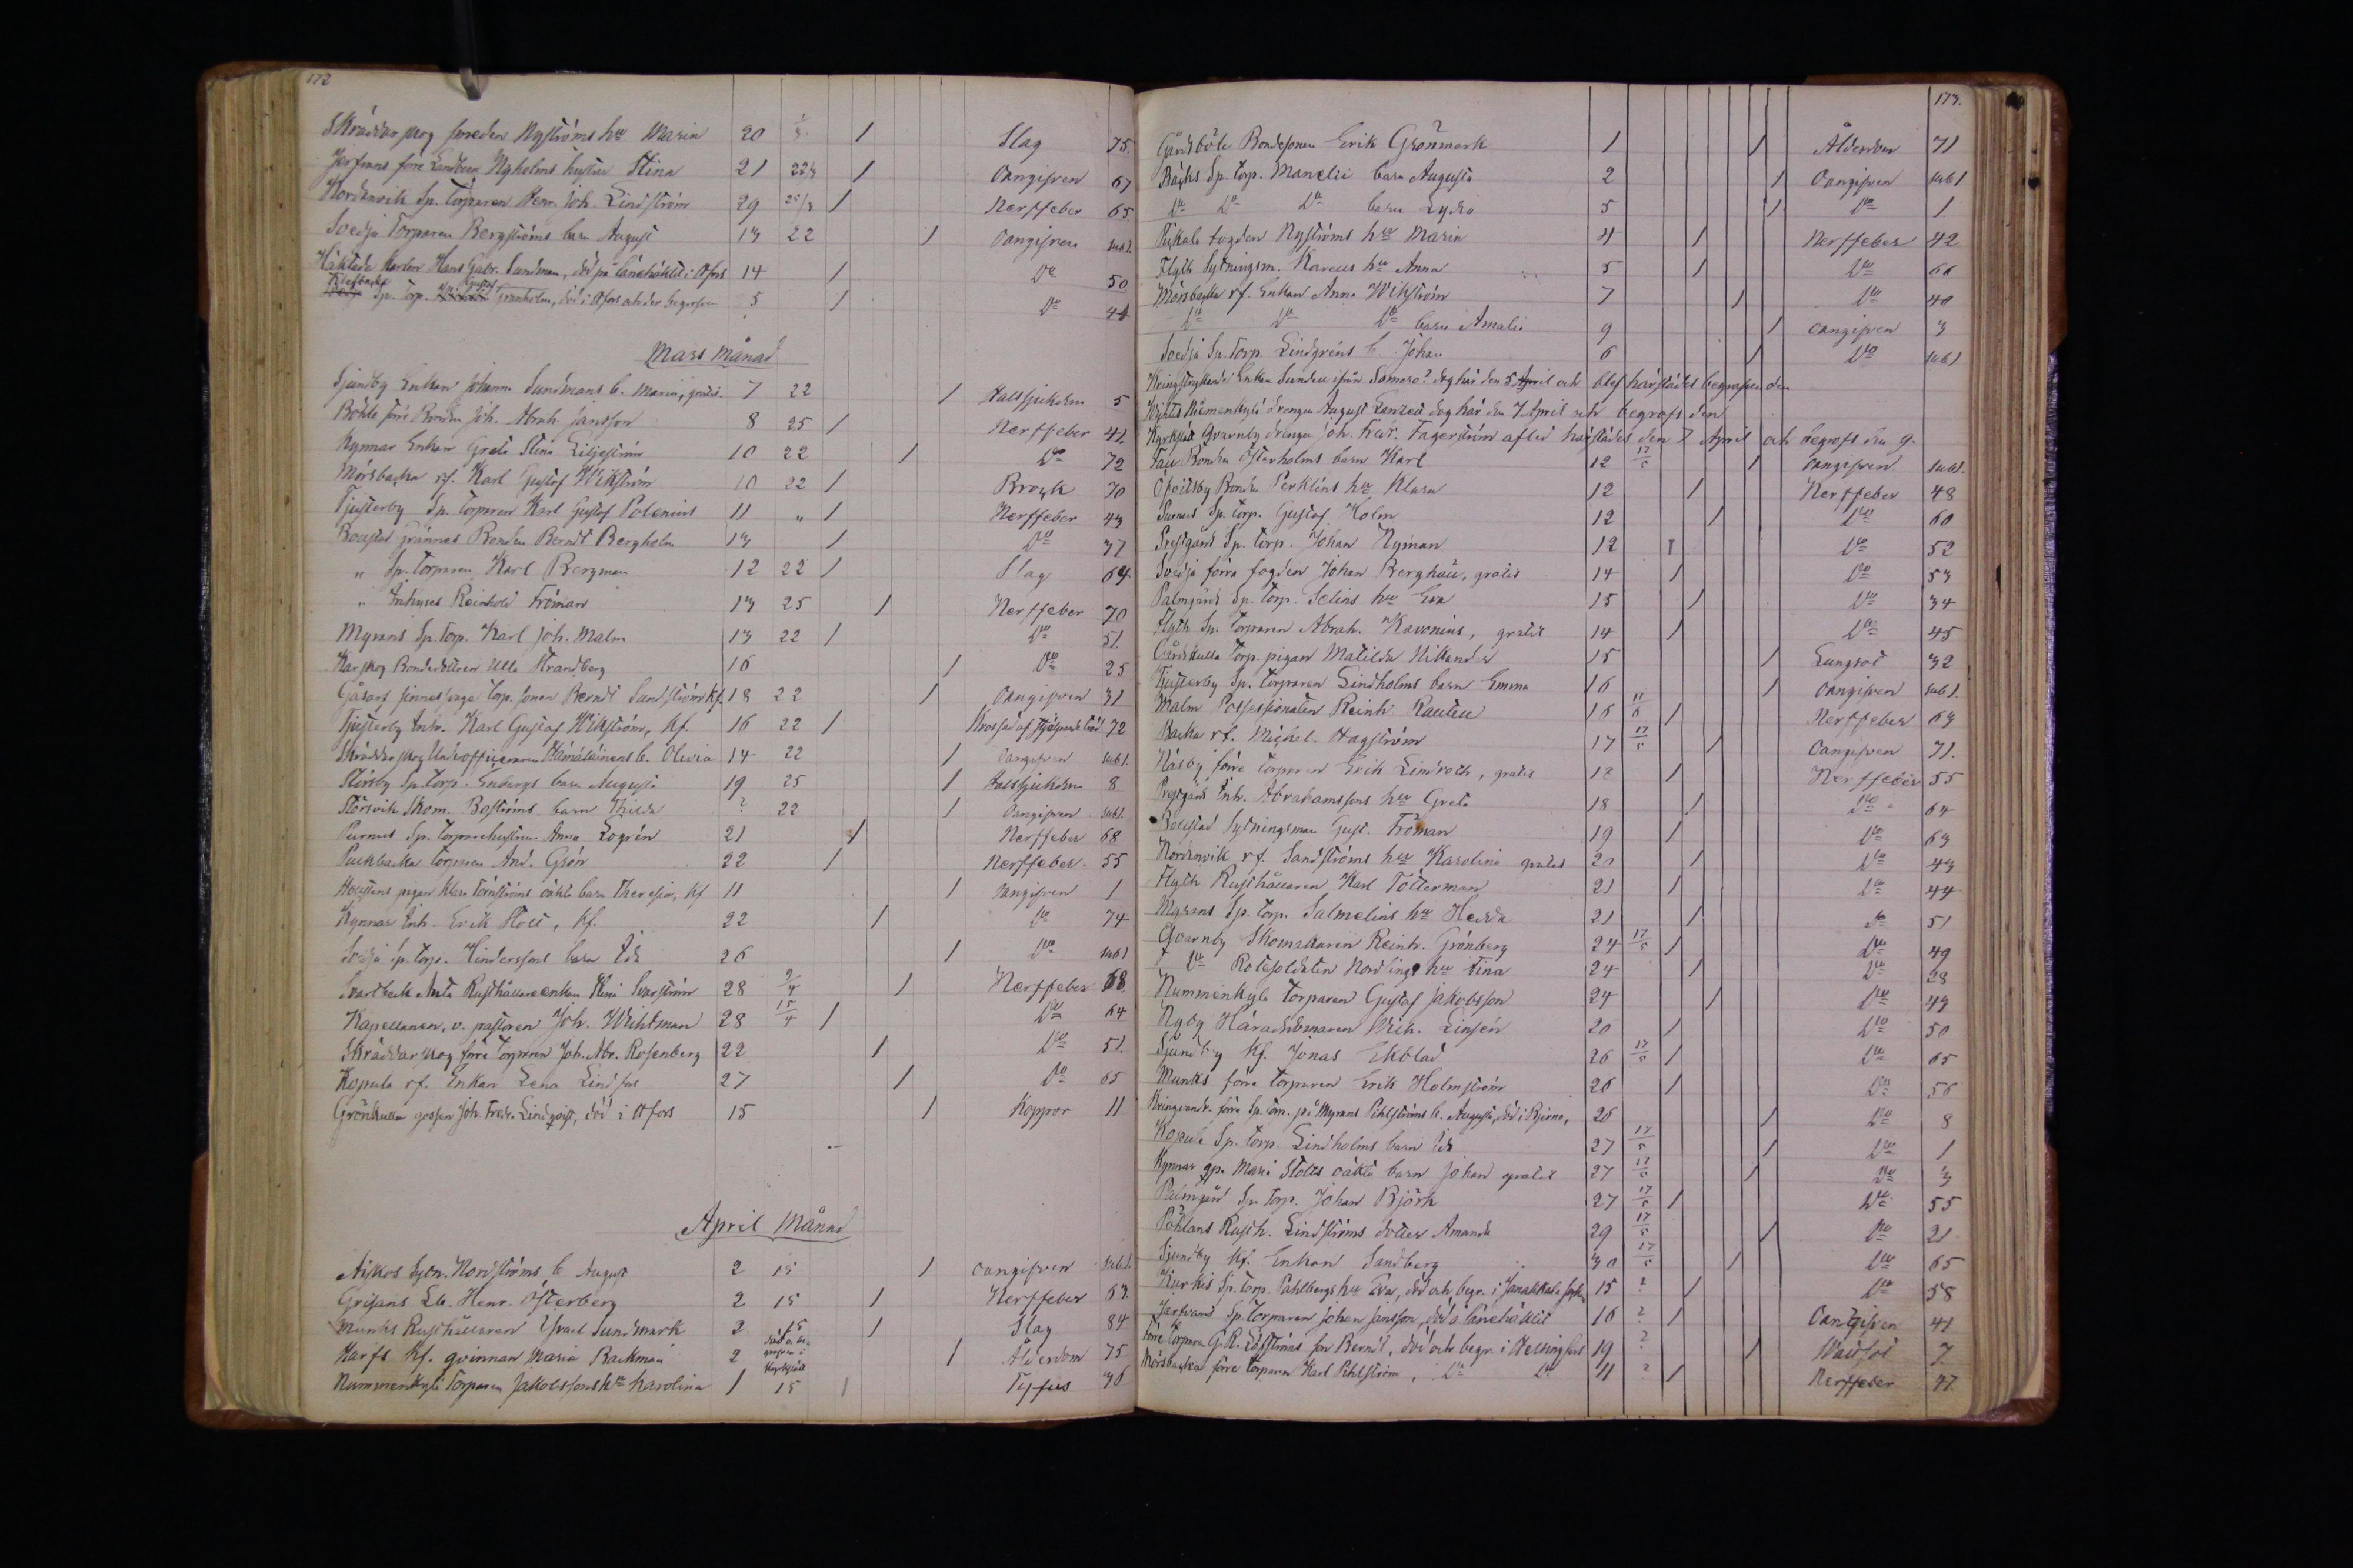 172
Skräddarskog smeden Nyströms hu Maria 20 1/3 / Slag 75.
Jerfvans förre Landboen Nyholms hustru Stina 21 22/3 / Oangifven 67
Nordanvik Sp. Torparen Henr. Joh. Lindström 29 25/3 / Nerffeber 65.
Svedja Torparen Bergströms barn August 13 22 / Oangifven sub 1.
Häktade Hans Gabr. Sundman, död på länehäktet i Hfors 14 / Do 50
Sp. Torp. Gustaf Granholm, död i Hfors och der begrafven 5 / Do 41
Mars Månad
Sjundby Enkan Johanna Sundmans b. Maria, gratis. 7 22 / Halssjukdom 5
Böhle förre Bonden Joh. Abrah. Jansson 8 25 / Nerffeber 41.
Kynnar Enkan Greta Stina Liljeström 10 22 / Do 72
Mörsbacka rf. Karl Gustaf Wikström 10 22 / Bråck 70
Tjusterby Sp. Torparen Karl Gustaf Polenius 11 " / Nerffeber 43
Boustad Grännes Bonden Berndt Bergholm 13 / Do 37
" Sp. Torparen Karl Bergman 12 22 / Slag 64
" Inhyses Reinhold Fröman 13 25 / Nerffeber 70
Myrans Sp. Torp. Karl Joh. Malm 13 22 / Do 51.
Karskog Bondedottren Ulla Strandberg 16 / Do 25
Gåsars sinnessvaga Torp. sonen Berndt Sundström kf. 18 22 / Oangifven 31
Tjusterby Inh. Karl Gustaf Wikström, kf. 16 22 / Krossad af stjelpande träd 72
Skräddarskog Underofficeraren Hämäläinens b. Olivia 14 22 / Oangifven sub 1.
Störsby Sp. Torp. Enbergs barn Augusta 19 25 / Halssjukdom 8
Störsvik Skom. Boströms barn Thilda ? 22 / Oangifven sub 1.
Purnus Sp. Torparehustrun Anna Logrén 21 / Nerffeber 68
Puckbacka Torparen And. Grön 22 / Nerffeber. 55
pigan Klara Törnströms oäkta barn Theresia, kf 11 / Oangifven 1
Kynnar Inh. Erik Stolt, kf. 22 / Do 74
Svedja sp. torp. Hinderssons barn Ida 26 / Do sub 1
Svartbeck Anta Rusthållareenkan Stina Svarström 28 2/4 / Nerffeber 68.
Kapellanen, v. pastoren Joh. Wichtman 28 15/4 / Do 64
Skräddarskog förre Torparen Joh. Abr. Rosenberg 22 / Do 51.
Kopula rf. Enkan Lena Lindfors 27 / Do 65
Grönkulla gossen Joh. Fredr. Lindqvist, död i Hfors 15 / Koppor 11
April Månad
Aiskos Sytn. Nordströms b. August 2 15 / Oangifven sub 1.
Grisans Lb. Henr. Österberg 2 15 / Nerffeber 63.
Munks Rusthållaren Israel Sundmark 2. 15 / Slag 84
Harfs kf. qvinnan Maria Backman 2 / Ålderdom 75
Nummenkylä Torparen Jakobssons hu Karolina 1 15 / Tyfus 36
173.
Gårdsböle Bondesonen Erik Grönmark 1 / Ålderdom 71
Bäcks Sp. Torp. Manelii barn Augusta 2 / Oangifven sub 1
Do Do Do barn Lydia 5 / Do 1.
Pickala fogden Nyströms hu Maria 4 / Nerffeber 42
Flyth Sytningsm. Karells hu Anna 5 / Do 66
Mörsbacka rf. Enkan Anna Wikström 7 / Do 40
Do Do Do barn Amalia 9 / Oangifven 3
Svedja Sp. Torp. Lindgrens b. Johan 6 / Do sub 1
Kringstrykande Enkan Sundell ifrån Somero? dog här den 5 April och blef härstädes begrafven den
Nummenkylä drengen August dog här den 7 April och begrofs den
Kyrkslätt Qvarnby drengen Joh. Fredr. Fagerström afled härstädes den 7 April och begrofs den 9.
Fall Bonden Österholms barn Karl 12 17/5 / Oangifven sub 1.
Övitsby Bonden Perkléns hu Klara 12 / Nerffeber 48
Purnus Sp. Torp. Gustaf Holm 12 / Do 60
Prestgård Sp. Torp. Johan Nyman 12 / Do 52
Svedja förra fogden Johan Berghäll, gratis 14 / Do 53
Palmgård Sp. Torp. Selins hu Eva 15 / Do 34
Flyth Sp. Torparen Abrah. Kavonius, gratis 14 / Do 45
Gårdskulla Torp. pigan Matilda Nikander 15 / Lungsot 32
Tjusterby Sp. Torparen Lindholms barn Emma 16 / Oangifven sub 1.
Malm Possessionaten Reinh. Rautell 16 11/6 / Nerffeber 63
Backa rf. Mickel Hagström 17 17/5 / Oangifven 71.
Näsby förre Torparen Erik Lindroth, gratis 12 / Nerffeber 55
Prestgård Inh. Abrahamssons hu Greta 18 / Do 64
Boustad Sytningsman Gust. Fröman 19 / Do 63
Nordanvik rf. Sandströms hu Karolina gratis 20 / Do 43
Flyth Rusthållaren Karl Tötterman 21 / Do 44
Myrans Sp. Torp. Salmelins hu Hedda 21 / Do 51
Qvarnby Skomakaren Reinh. Grönberg 24 17/5 / Do 49
Do Rotesoldaten Nordlings hu Fina 24 / Do 28
Nummenkylä Torparen Gustaf Jakobsson 24 / Do 49
Nyby Häradsdomaren Wilh. Linsén 20 / Do 50
Sjundby kf. Jonas Ekblad 26 17/5 / Do 65
Munks förre Torparen Erik Holmström 26 / Do 56
Kringvandr. förre Sp. Torp. på Myrans Pihlströms b. Augusta, död i Bjerno, 26 / Do 8
Kopula Sp. Torp. Lindholms barn Ida 27 17/5 / Do 1
Kynnar qp. Maria Stolts oäkta barn Johan gratis 27 17/5 / Do 3
Palmgård Sp. Torp. Johan Björk 27 17/5 / Do 55
Pöhlans Rusth. Lindströms dotter Amanda 29 17/5 / Do 21
Sjundby kf. Enkan Sandberg 30 17/5 / Do 65
Kurkis Sp. Torp. Pahlbergs hu Eva, död och begr. i Janakkala socken 15 ? / Do 58
Jerfvans Sp. Torparen Johan Jansson, död å länehäktet 16 ? / Oangifven 41
Förre Torparen G. R. Löfströms son Berndt, död och begr. i Helsingfors 19 ? / 7
Mörsbacka förre Torparen Karl Pihlström, Do Do 11 ? / Nerffeber 47